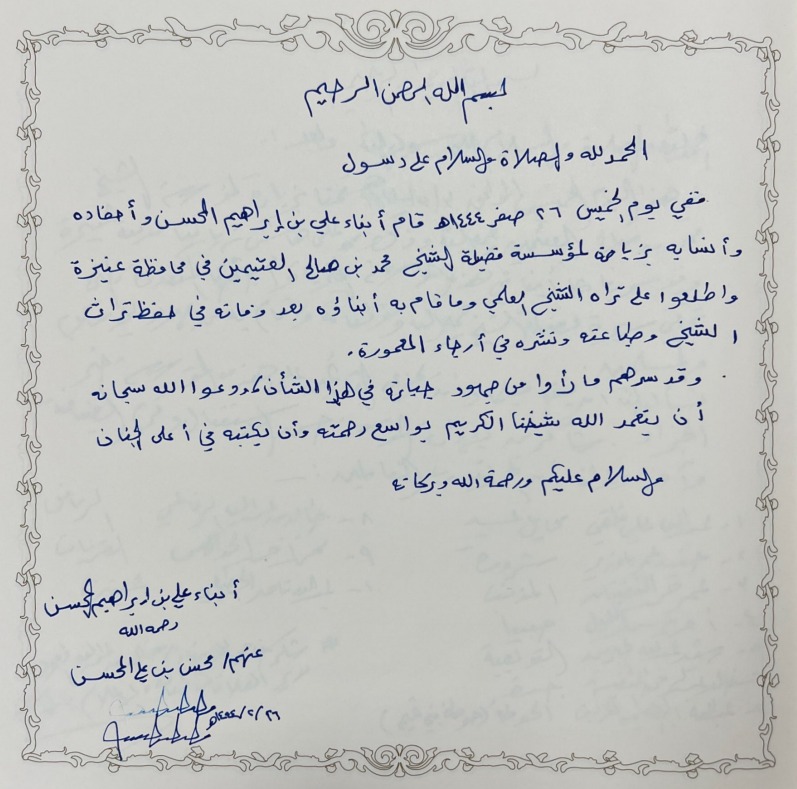 بسم الله الرحمن الرحيم
الحمد لله والصلاة والسلام على رسول
ففي يوم الخميس ٢٦ صفر ١٤٤٤هـ قام أبناء علي بن إبراهيم المحسن وأحفاده
وأنسابه بزيارة لمؤسسة فضيلة الشيخ محمد بن صالح العثيمين في محافظة عنيزة
واطلعوا على تراث الشيخ العلمي وما قام به أبناؤه بعد وفاته في حفظ تراث
الشيخ وطباعته ونشره في أرجاء المعمورة.
وقد سرهم ما رأوا من جهود جبارة في هذا الشأن ودعوا الله سبحانه
أن يتغمد الله شيخنا الكريم بواسع رحمته وأن يكتبه في أعلى الجنان
والسلام عليكم ورحمة الله وبركاته
أبناء علي بن إبراهيم المحسن
رحمه الله
عنهم/ محسن بن علي المحسن
٢٦/٢/١٤٤٤هـ